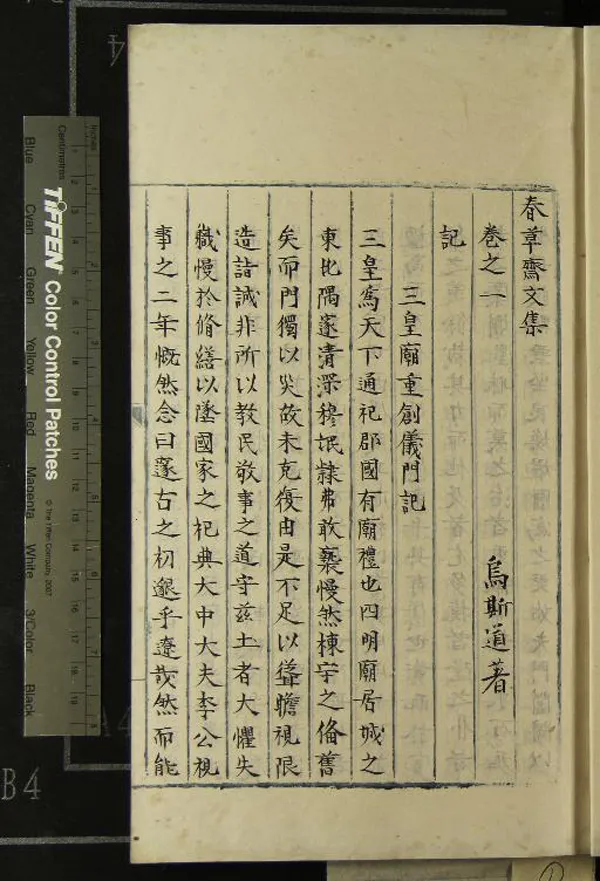 春草齋文集
卷之一 烏斯道著
記
三皇廟重創儀門記
三皇爲天下通祀郡國有廟禮也四明廟居城之
東北隅邃清深穆氓隸弗敢褻慢然棟宇之俻舊
矣而門獨以災故未克復由是不足以聳瞻視限
造詣誠非所以教民敬事之道守茲土者大懼失
職慢於脩繕以墜國家之祀典大中大夫李公視
事之二年慨然念曰邃古之初邈乎遼哉然而能
Inches
Centimetres
TIFFEN Color Control Patches
© The Tiffen Company, 2007
Blue Cyan Green Yellow Red Magenta White 3/Color Black
B4
A4